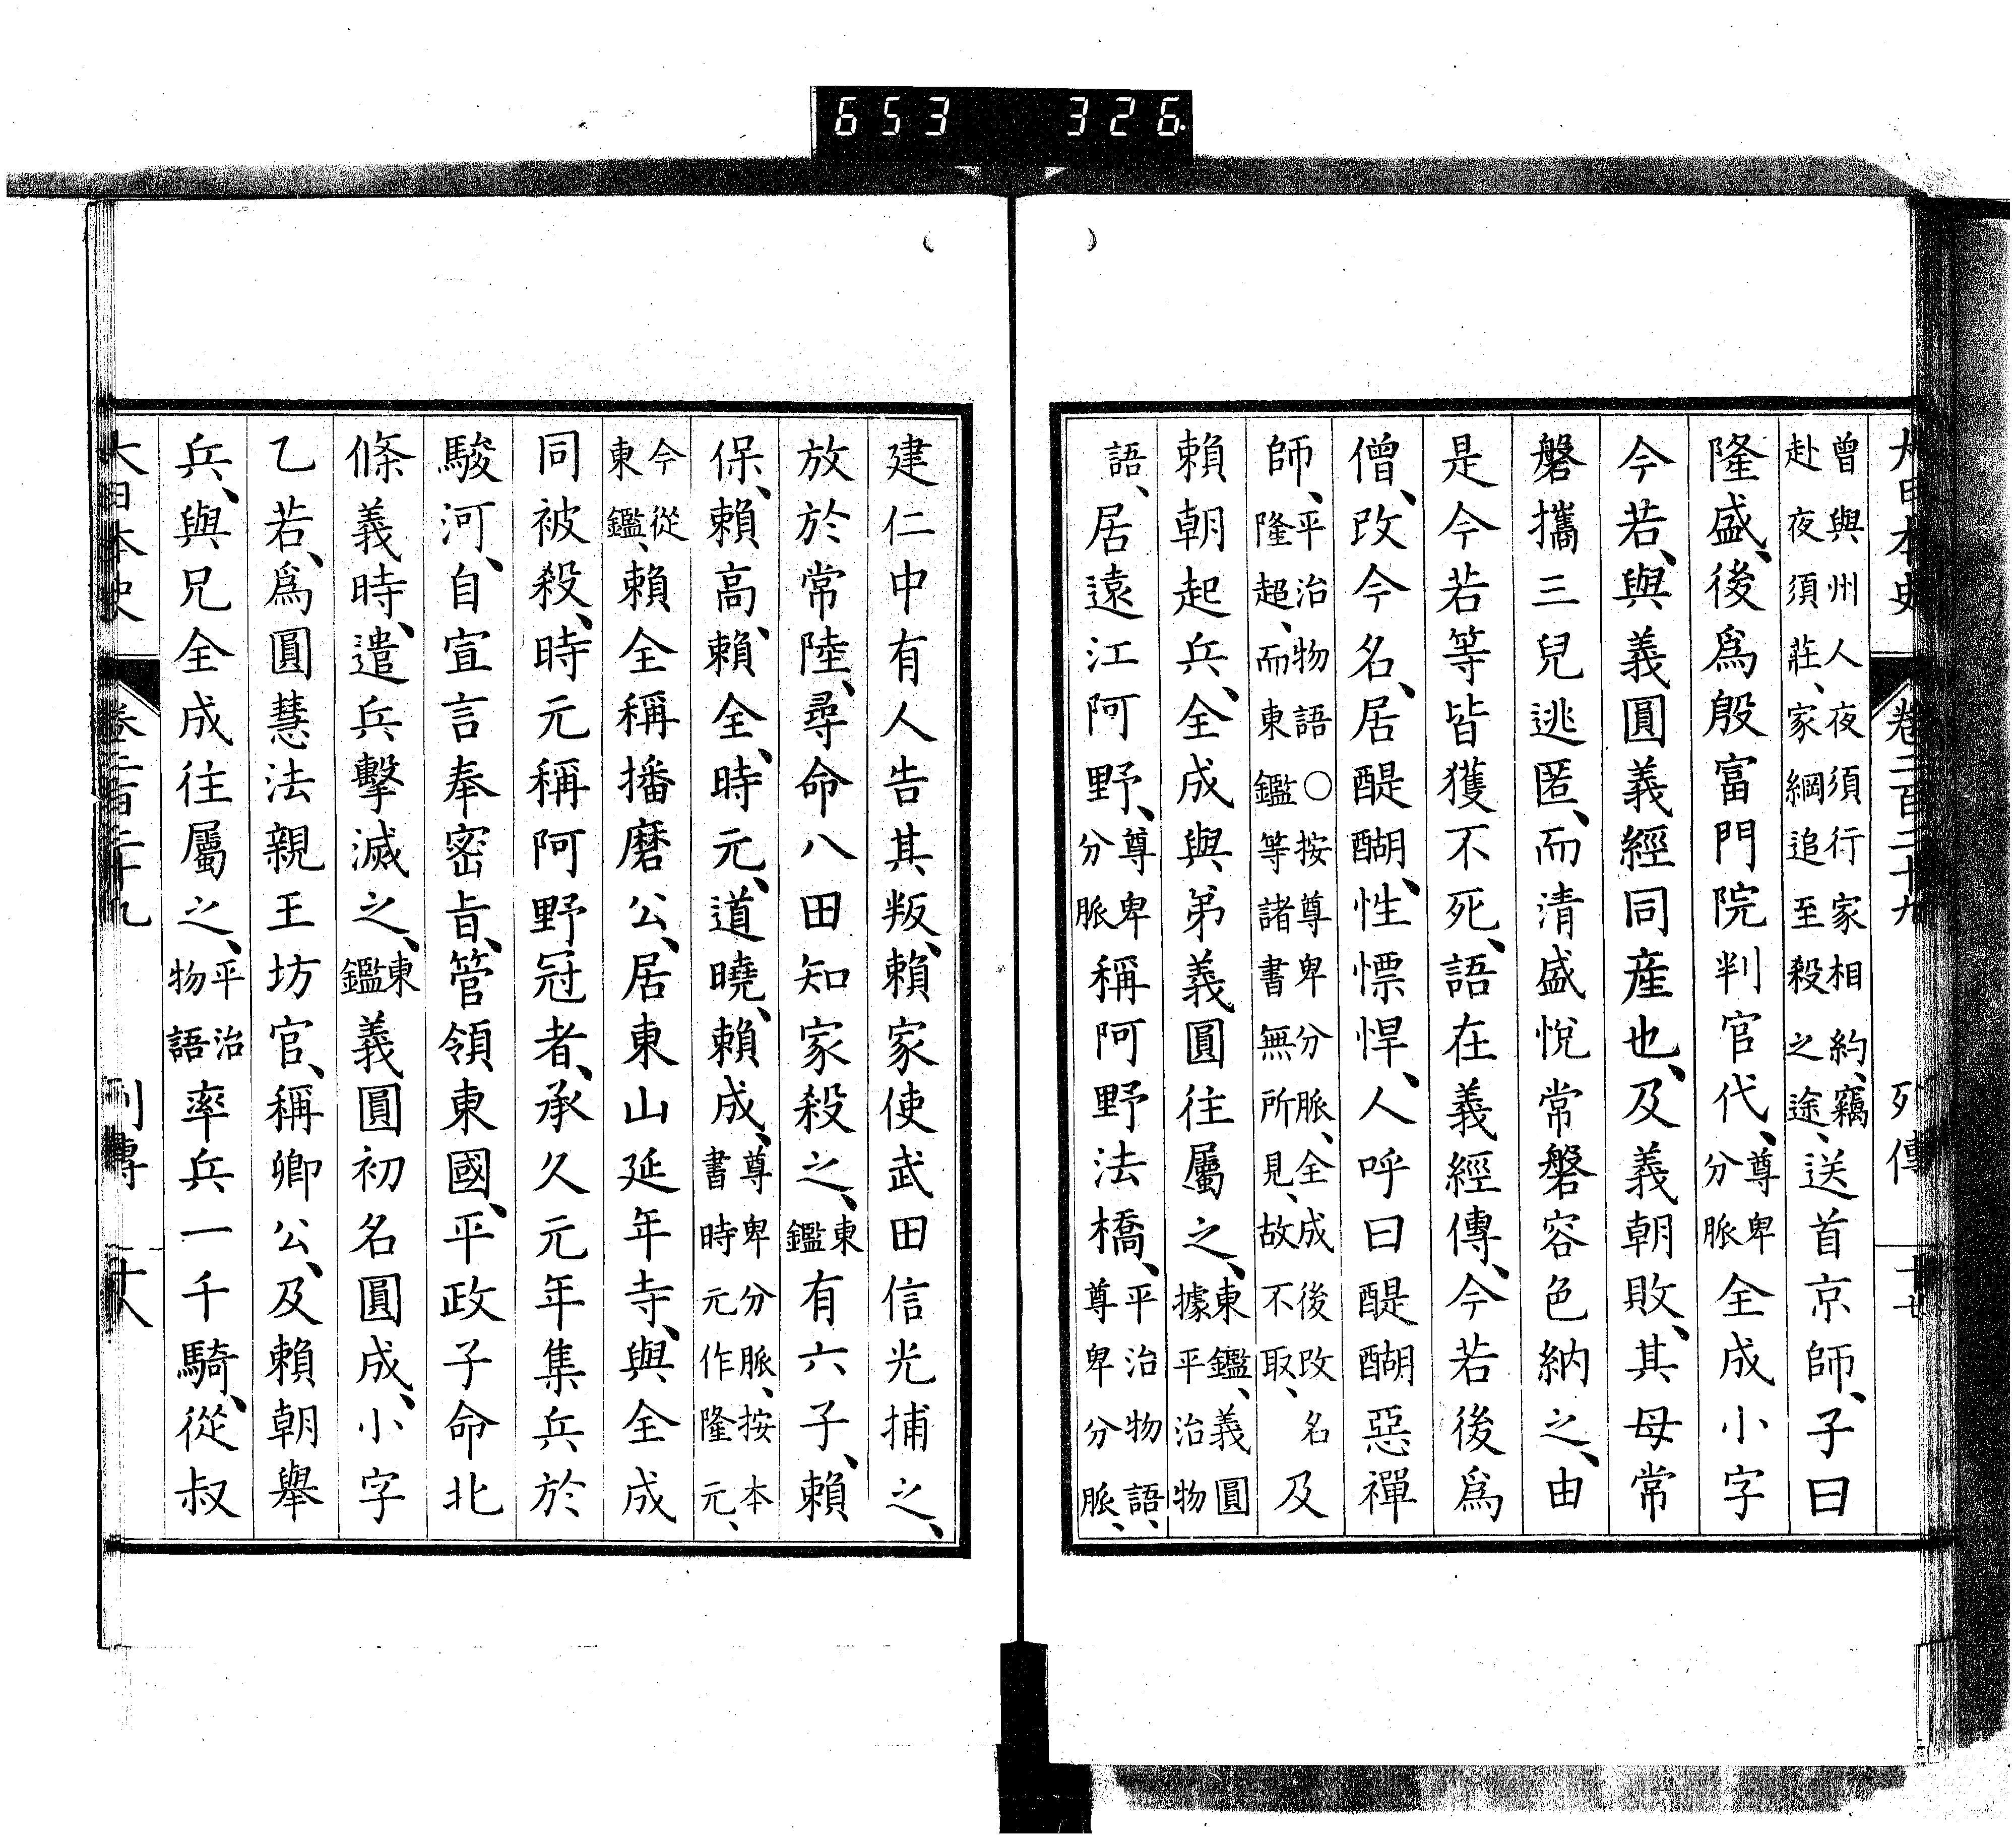 653 326
大日本史 卷二百二十九 列傳 十七
曾與州人夜須行家相約、竊赴夜須莊、家綱追至殺之途、送首京師、子曰
隆盛、後爲殷富門院判官代、尊卑分脈全成小字
今若、與義圓義經同産也、及義朝敗、其母常
磐攜三兒逃匿、而清盛悅常磐容色納之、由
是今若等皆獲不死、語在義經傳、今若後爲
僧、改今名、居醍醐、性慓悍、人呼曰醍醐惡禪
師、平治物語○按尊卑分脈、全成後改名隆超、而東鑑等諸書無所見、故不取、及
賴朝起兵、全成與弟義圓往屬之、東鑑、義圓據平治物
語、居遠江阿野、尊卑分脈稱阿野法橋、平治物語、尊卑分脈、
建仁中有人告其叛、賴家使武田信光捕之、
放於常陸、尋命八田知家殺之、東鑑有六子、賴
保、賴高、賴全、時元、道曉、賴成、尊卑分脈、按本書時元作隆元、
今從東鑑、賴全稱播磨公、居東山延年寺、與全成
同被殺、時元稱阿野冠者、承久元年集兵於
駿河、自宣言奉密旨、管領東國、平政子命北
條義時、遣兵擊滅之、東鑑義圓初名圓成、小字
乙若、爲圓慧法親王坊官、稱卿公、及賴朝舉
兵、與兄全成往屬之、平治物語率兵一千騎、從叔
大日本史 卷二百二十九 列傳 十八